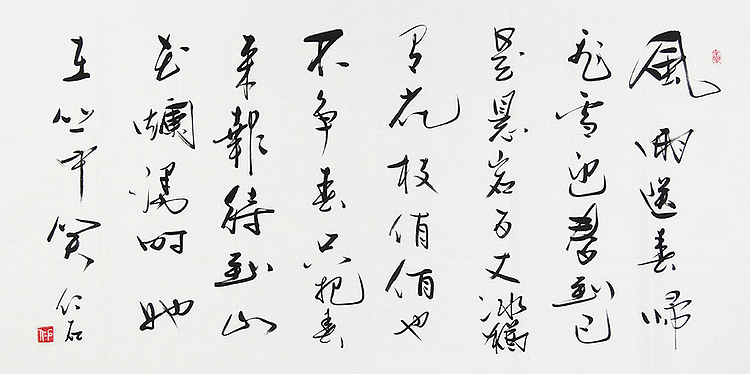 風雨送春歸
飛雪迎春到已
是懸岩百丈冰猶
有花枝俏俏也
不争春只把春
来報待到山
花爛漫时她
在丛中笑 仁石